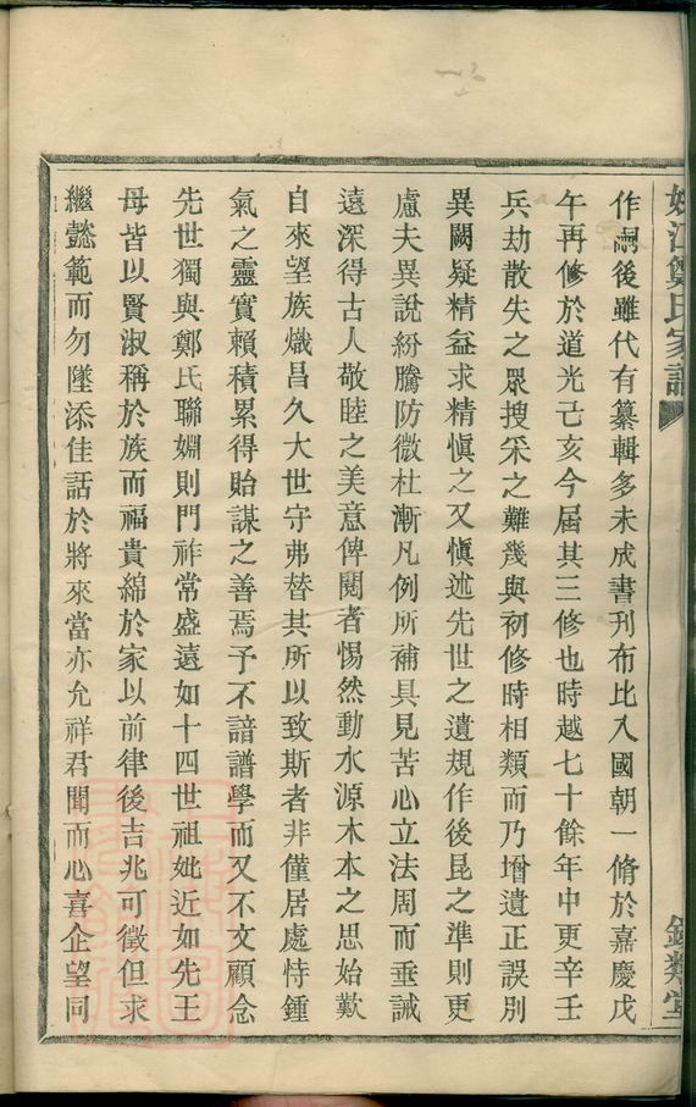 姚江鄭氏家譜
作嗣後雖代有纂輯多未成書刊布比入國朝一脩於嘉慶戊
午再修於道光己亥今屆其三修也時越七十餘年中更辛壬
兵劫散失之眾搜采之難幾與初修時相類而乃增遺正誤別
異闕疑精益求精慎之又慎述先世之遺規作後昆之準則更
慮夫異說紛騰防微杜漸凡例所補具見苦心立法周而垂誡
遠深得古人敬睦之美意俾閱者惕然動水源木本之思始歎
自來望族熾昌久大世守弗替其所以致斯者非僅居處恃鍾
氣之靈實賴積累得貽謀之善焉予不諳譜學而又不文顧念
先世獨與鄭氏聯姻則門祚常盛遠如十四世祖妣近如先王
母皆以賢淑稱於族而福貴綿於家以前律後吉兆可徵但求
繼懿範而勿墜添佳話於將來當亦允祥君聞而心喜企望同